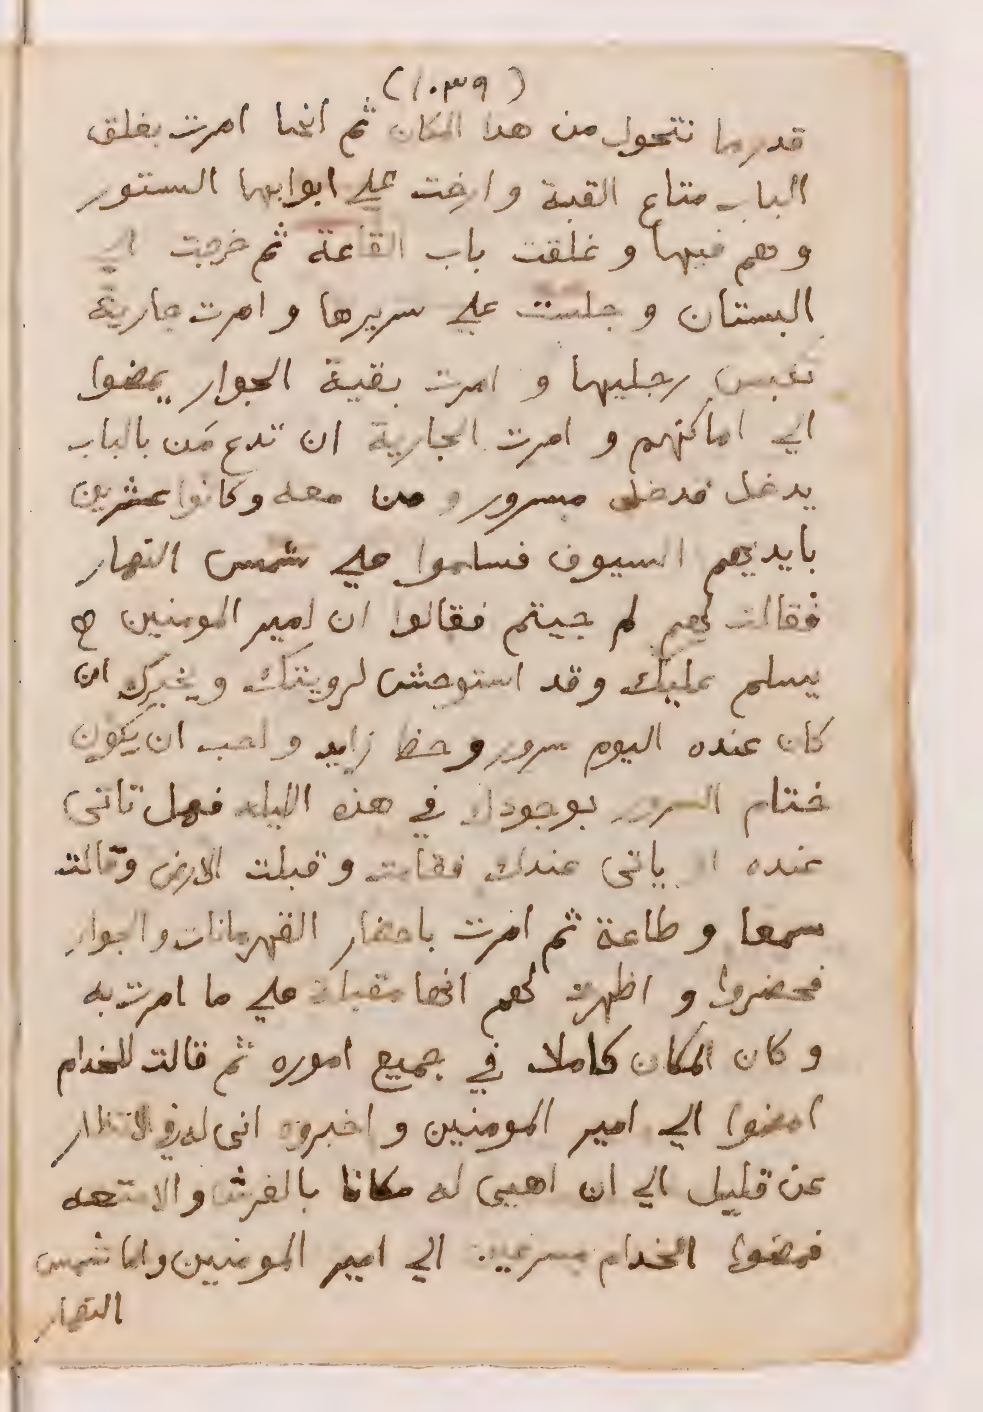 (١٠٣٩)
قدر ما نتحول من هدا المكان ثم انها امرت بغلق
الباب متاع القبة وارخت علي ابوابها الستور
وهم فيها و غلقت باب القاعة ثم خرجت الي
البستان و جلست علي سريرها و امرت جارية
تكبس رجليها و امرت بقية الجوار يمضوا
الي اماكنهم و امرت الجارية ان تدع مَن بالباب
يدخل فدخل مسرور و من معه وكانوا عشرين
بايديهم السيوف فسلموا علي شمس النهار
فقالت لهم لم جيتم فقالوا ان امير المومنين
يسلم عليك وقد استوحش لرويتك ويخبرك ان
كان عنده اليوم سرور و حظ زايد و احب ان يكون
ختام السرور بوجودك في هذه الليله فهل تاتى
عنده او ياتى عندك فقامت و قبلت الارض وقالت
سمعا و طاعة ثم امرت باحضار القهرمانات والجوار
فحضروا و اظهرت لهم انها مقبلة علي ما امرت به
و كان المكان كاملا في جميع اموره ثم قالت للخدام
امضوا الي امير المومنين و اخبروه انى له في الانتظار
عن قليل الي ان اهيى له مكانا بالفرش و الامتعه
فمضوا الخدام مسرعين الي امير المومنين واما شمس
النهار